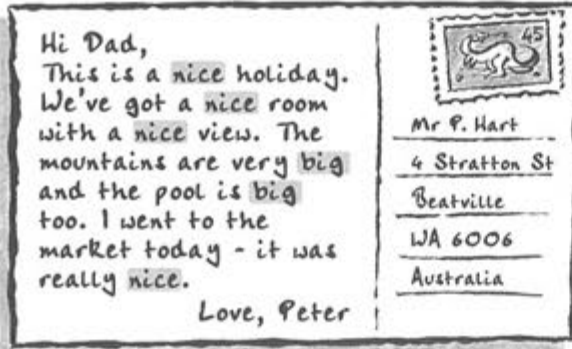 Hi Dad,
This is a nice holiday.
We've got a nice room
with a nice view. The
mountains are very big
and the pool is big
too. I went to the
market today - it was
really nice.
Love, Peter
45
Mr P. Hart
4 Stratton St
Beatville
WA 6006
Australia